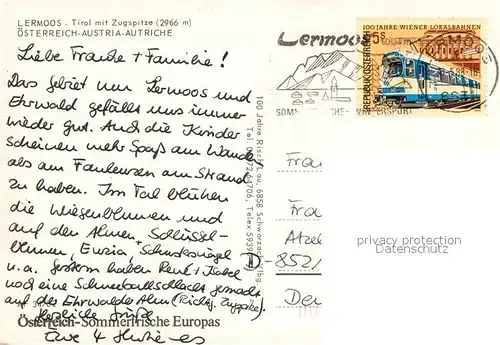 LERMOOS - Tirol mit Zugspitze (2966 m)
ÖSTERREICH-AUSTRIA-AUTRICHE
Liebe Traude + Familie!
Das Gebiet um Lermoos und
Ehrwald gefällt uns immer
wieder gut. Auch die Kinder
scheinen mehr Spaß am Wandern
als am Faulenzen am Strand
zu haben. Im Tal blühen
die Wiesenblumen und
auf den Almen Schlüssel-
blumen, Enzian + Schusternägel
u.a. Gestern haben René + Isabel
noch eine Schneeballschlacht gemacht
auf der Ehrwalder Alm (Richtg. Zugspitze).
Herzliche Grüße
Österreich-Sommerfrische Europas
Eure 4
100 Jahre Risch-Lau, 6858 Schwarzach/Vlbg.
Lermoos
1004 m
SOMMERFRISCHE - WINTERSPORT
100 JAHRE WIENER LOKALBAHNEN
5s
REPUBLIK ÖSTERREICH
LERMOOS
Frau
Fra
Atzel
D-8521
Deu
privacy protection
Datenschutz